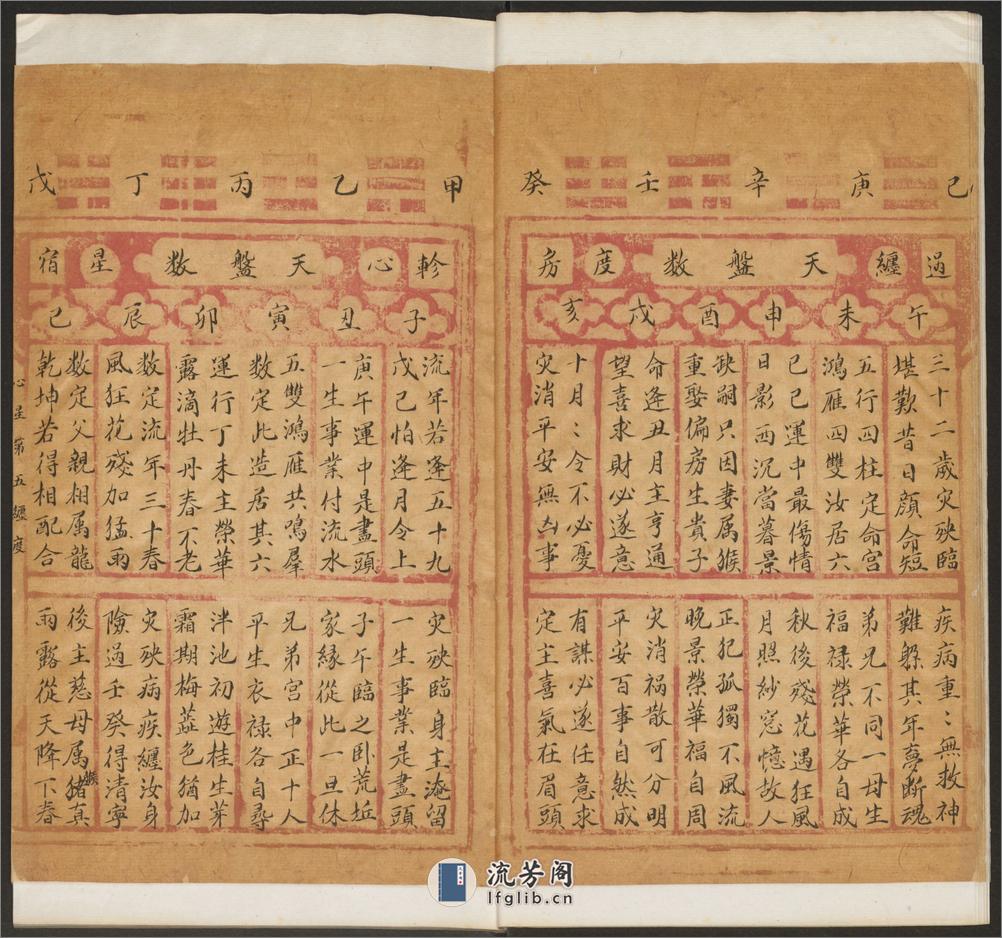 己 庚 辛 壬 癸
過纏 天盤数 度房
午 未 申 酉 戌 亥
三十二歲灾殃臨
堪歎昔日顏命短
五行四柱定命宮
鴻雁四雙汝居六
己巳運中最傷情
日影西沉當暮景
缺嗣只因妻属猴
重娶偏房生貴子
命逢丑月主亨通
望喜求財必遂意
十月〻令不必憂
灾消平安無凶事
疾病重〻無救神
難躲其年夢斷魂
弟兄不同一母生
福禄榮華各自成
秋後殘花遇狂風
月照紗窓憶故人
正犯孤獨不風流
晚景榮華福自周
灾消禍散可分明
平安百事自然成
有謀必遂任意求
定主喜氣在眉頭
甲 乙 丙 丁 戊
軫心 天盤数 星宿
子 丑 寅 卯 辰 巳
流年若逢五十九
戊己怕逢月令上
庚午運中是盡頭
一生事業付流水
五雙鴻雁共鳴羣
数定此造居其六
運行丁未主榮華
露滴牡丹春不老
数定流年三十春
風狂花殘加猛雨
数定父親相属龍
乾坤若得相配合
灾殃臨身主淹留
一生事業是盡頭
子午臨之卧荒坵
家緣從此一旦休
兄弟宮中正十人
平生衣禄各自尋
泮池初遊桂生芽
霜期梅蕋色猶加
灾殃病疾纏汝身
險過壬癸得清寧
後主慈母属猪真
猴
雨露從天降下春
心星第五纏度
流芳阁
lfglib.cn